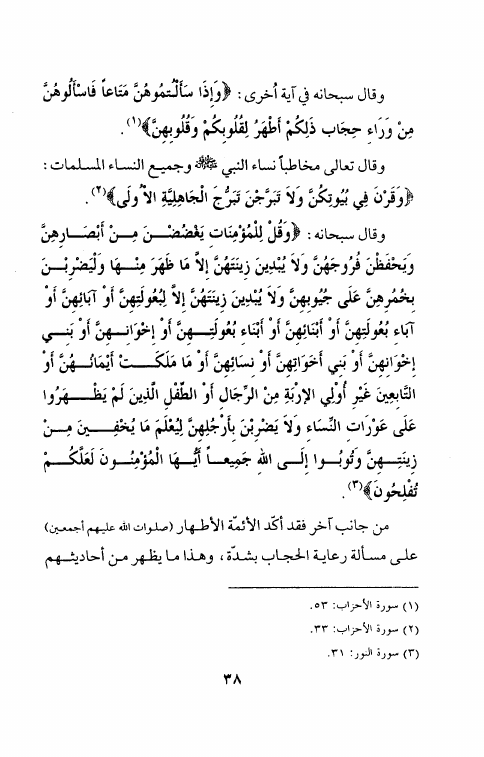 وقال سبحانه في آية أخرى: ﴿وَإِذَا سَأَلْتُمُوهُنَّ مَتَاعاً فَاسْأَلُوهُنَّ
مِنْ وَرَاءِ حِجَاب ذَلِكُمْ أَطْهَرُ لِقُلُوبِكُمْ وَقُلُوبِهِنَّ﴾(١).
وقال تعالى مخاطباً نساء النبي ﷺ وجميع النساء المسلمات:
﴿وَقَرْنَ فِي بُيُوتِكُنَّ وَلاَ تَبَرَّجْنَ تَبَرُّجَ الْجَاهِلِيَّةِ الأُولَى﴾(٢).
وقال سبحانه: ﴿وَقُلْ لِلْمُؤْمِنَات يَغْضُضْنَ مِنْ أَبْصَارِهِنَّ
وَيَحْفَظْنَ فُرُوجَهُنَّ وَلاَ يُبْدِينَ زِينَتَهُنَّ إِلاَّ مَا ظَهَرَ مِنْهَا وَلْيَضْرِبْنَ
بِخُمُرِهِنَّ عَلَى جُيُوبِهِنَّ وَلاَ يُبْدِينَ زِينَتَهُنَّ إِلاَّ لِبُعُولَتِهِنَّ أَوْ آبَائِهِنَّ أَوْ
آبَاء بُعُولَتِهِنَّ أَوْ أَبْنَائِهِنَّ أَوْ أَبْنَاء بُعُولَتِهِنَّ أَوْ إِخْوَانِهِنَّ أَوْ بَنِي
إِخْوَانِهِنَّ أَوْ بَنِي أَخَوَاتِهِنَّ أَوْ نِسَائِهِنَّ أَوْ مَا مَلَكَتْ أَيْمَانُهُنَّ أَوْ
التَّابِعِينَ غَيْرِ أُولِي الإِرْبَةِ مِنَ الرِّجَالِ أَوْ الطِّفْلِ الَّذِينَ لَمْ يَظْهَرُوا
عَلَى عَوْرَاتِ النِّسَاء وَلاَ يَضْرِبْنَ بِأَرْجُلِهِنَّ لِيُعْلَمَ مَا يُخْفِينَ مِنْ
زِينَتِهِنَّ وَتُوبُوا إِلَى اللهِ جَمِيعاً أَيُّهَا الْمُؤْمِنُونَ لَعَلَّكُمْ
تُفْلِحُونَ﴾(٣).
من جانب آخر فقد أكّد الأئمّة الأطهار (صلوات الله عليهم أجمعين)
على مسألة رعاية الحجاب بشدّة، وهذا ما يظهر من أحاديثهم
(١) سورة الأحزاب: ٥٣.
(٢) سورة الأحزاب: ٣٣.
(٣) سورة النور: ٣١.
٣٨